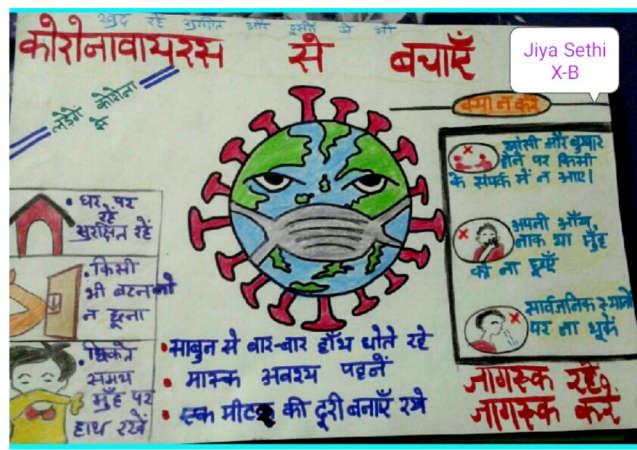 खुद रहें सुरक्षित और दूसरों को भी
कोरोनावायरस से बचाएँ
Jiya Sethi
X-B
लड़ेंगे कोरोना
से
क्या न करें
खांसी और बुखार
होने पर किसी
के संपर्क में न आए।
अपनी आँख
नाक या मुँह
को ना छुएँ
सार्वजनिक स्थानों
पर ना थूकें
• घर पर
रहें
सुरक्षित रहें
• किसी
भी बटन को
न छूना
• छिकते
समय
मुँह पर
हाथ रखें
• साबुन से बार-बार हाँथ धोते रहे
• मास्क अवश्य पहनें
• एक मीटर की दूरी बनाएँ रखे
जागरूक रहें
जागरूक करें